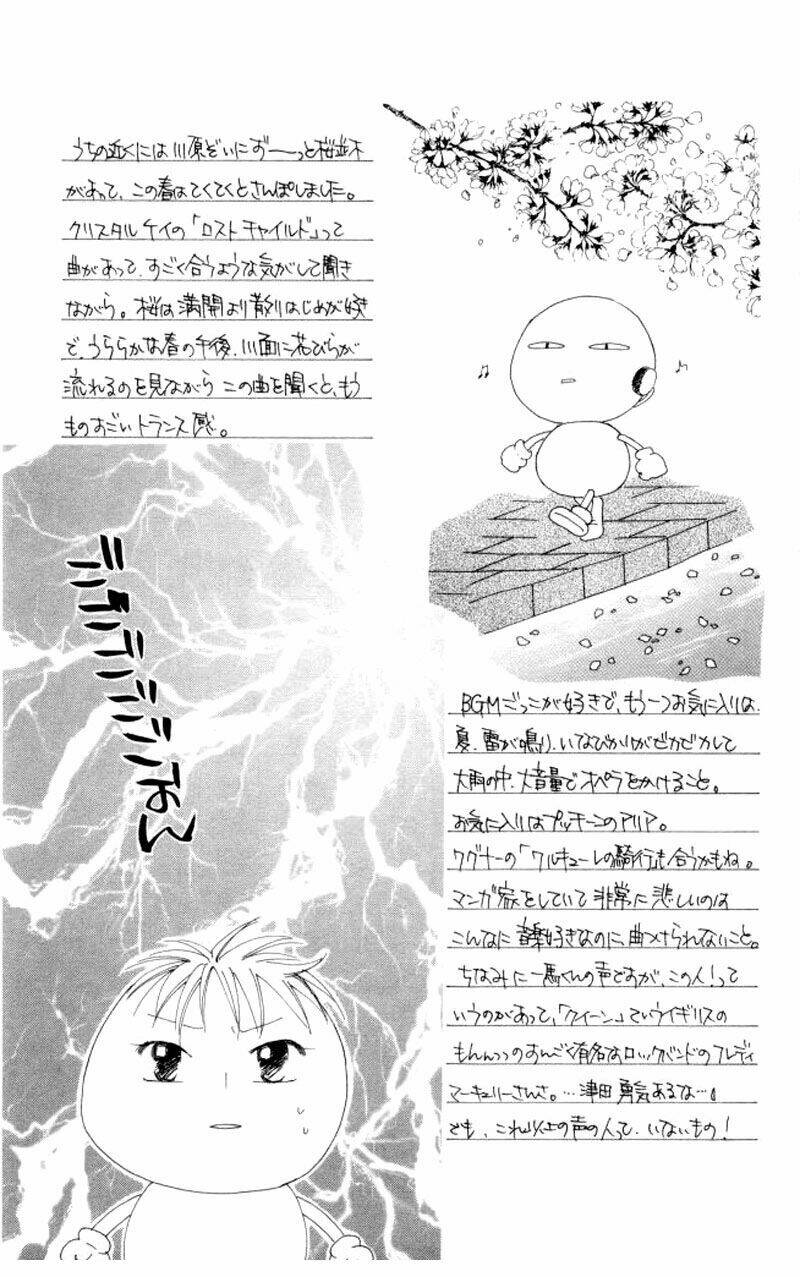 うちの近くには川原ぞいにずーーっと桜並木
があって、この春はてくてくとさんぽしました。
クリスタル ケイの「ロスト チャイルド」って
曲があって、すごく合うような気がして聞き
ながら。桜は満開より散りはじめが好き
で、うららかな春の午後、川面に花びらが
流れるのを見ながら この曲を聞くと、もう
ものすごいトランス感。
BGMごっこが好きで、もう一つお気に入りは、
夏、雷が鳴り、いなびかりがピカピカして
大雨の中、大音量でオペラをかけること。
お気に入りはプッチーニのアリア。
ワグナーの「ワルキューレの騎行」も合うかもね。
マンガ家をしていて 非常に 悲しいのは
こんなに 音楽好きなのに、曲つけられないこと。
ちなみに一馬くんの声ですが、この人！って
いうのがあって、「クイーン」ていうイギリスの
もんんっのすんごく有名なロックバンドのフレディ
マーキュリーさんさ。…津田 勇気あるな…。
でも、これ以上の声の人って、いないもの！